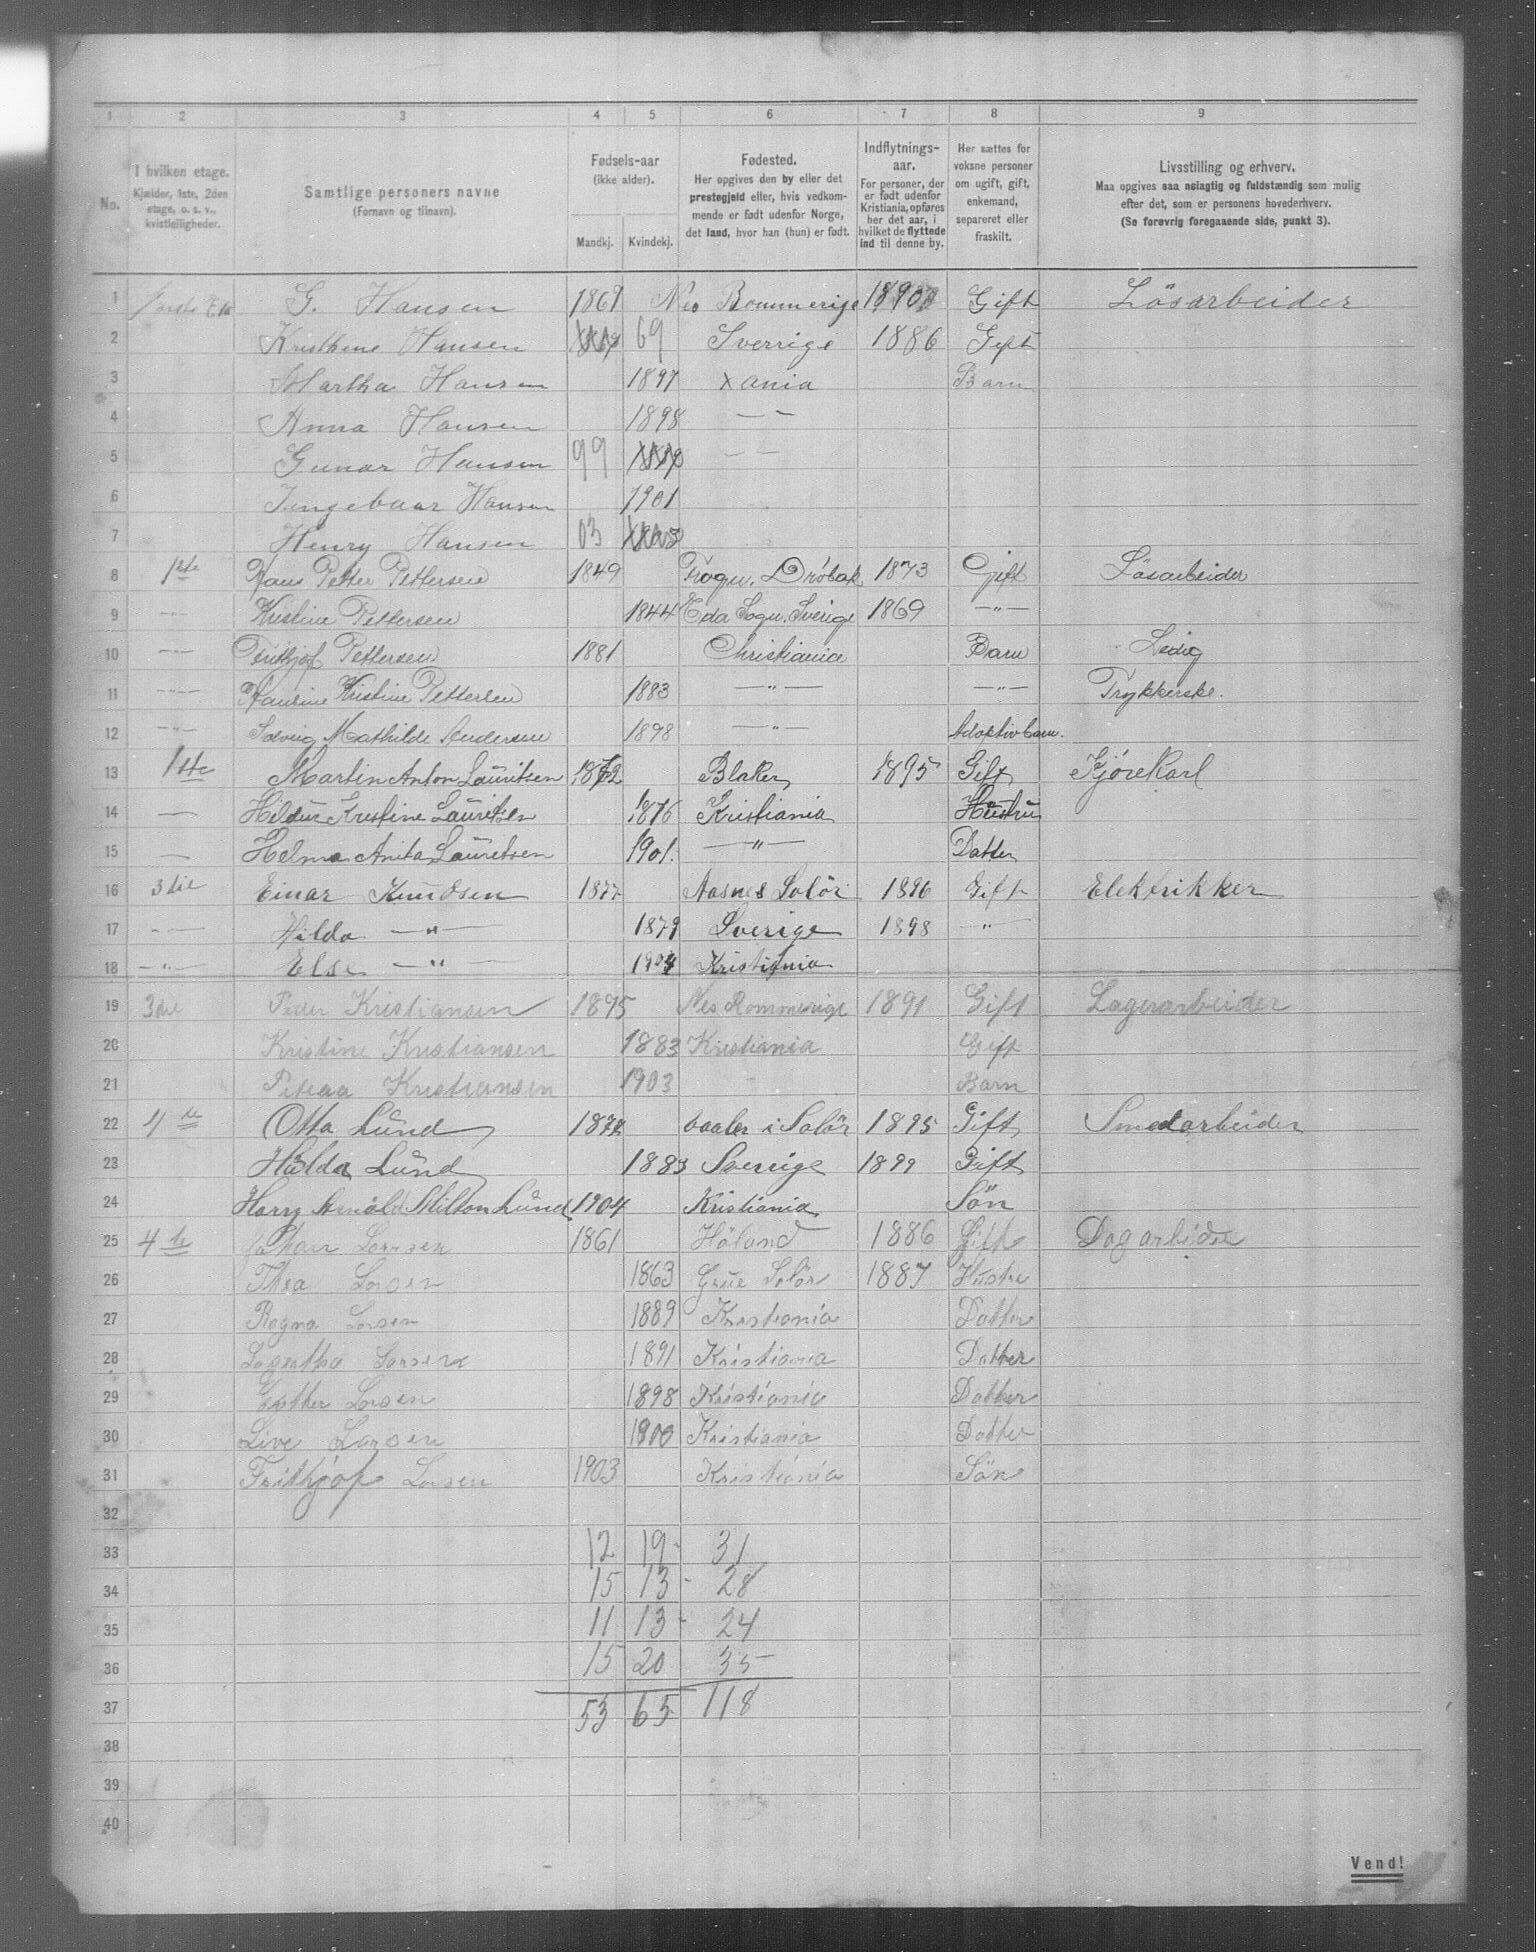 1 2 3 4 5 6 7 8 9
No.
I hvilken etage.
Kjælder, 1ste, 2den
etage, o. s. v.,
kvistleiligheder.
Samtlige personers navne
(Fornavn og tilnavn).
Fødsels-aar
(ikke alder).
Mandkj. Kvindekj.
Fødested.
Her opgives den by eller det
prestegjeld eller, hvis vedkom-
mende er født udenfor Norge,
det land, hvor han (hun) er født.
Indflytnings-
aar.
For personer, der
er født udenfor
Kristiania, opføres
her det aar, i
hvilket de flyttede
ind til denne by.
Her sættes for
voksne personer
om ugift, gift,
enkemand,
separeret eller
fraskilt.
Livsstilling og erhverv.
Maa opgives saa nøiagtig og fuldstændig som mulig
efter det, som er personens hovederhverv.
(Se forøvrig foregaaende side, punkt 3).
1 G. Hansen 1869 Nes Rommerige Gift Lösarbeider
2 Hansen 69 Sverrige 1886 Gift
3 Martha Hansen 1897 Xania Barn
4 Anna Hansen 1898 — -
5 Gunar Hansen 99 — -
6 Ingebaar Hansen 1901
7 Henry Hansen 03
8 1ste Hans Petter Pettersen 1849 Frogn. Dröbak 1873 Gift Lösarbeider
9 -"- Kristine Pettersen 1844 Eda Sogn. Sverige 1869 -"-
10 -"- Frithjof Pettersen 1881 Christiania Barn Ledig
11 -"- Pauline Kristine Pettersen 1883 -"- -"- Trykkerske.
12 -"- Solveig Mathilde Andersen 1898 -"- Adoptivbarn.
13 1ste Martin Anton Lauritsen 1872 Blaker 1895 Gift Kjörekarl
14 — Hildur Kristine Lauritsen 1876 Kristiania Hustru
15 — Helma Anita Lauritsen 1901. -"- Datter
16 3die Einar Knudsen 1877 Aasnes Solör 1896 Gift Elektrikker
17 -"- Hilda -"- 1879 Sverige 1898 -"-
18 -"- Else -"- 1904 Kristiania
19 3die Peder Kristiansen 1875 Nes Rommerige 1891 Gift Lagerarbeider
20 Kristine Kristiansen 1883 Kristiania Gift
21 Kristiansen 1903 - Barn
22 4de Otto Lund 1874 vaaler i Solör 1895 Gift Smedarbeider
23 Hilda Lund 1883 Sverrige 1899 Gift
24 Harry Arnold Milton Lund 1904 Kristiania Sön
25 4de Johan Larsen 1861 Höland 1886 Gift Dagarbeider
26 Thea Larsen 1863 Grue Solör 1887 Hustru
27 Ragna Larsen 1889 Kristiania Datter
28 Lagertha Larsen 1891 Kristiania Datter
29 Esther Larsen 1898 Kristiania Datter
30 Live Larsen 1900 Kristiania Datter
31 Frithjof Larsen 1903 Kristiania Sön
32
33 12 19 - 31
34 15 13 - 28
35 11 13 - 24
36 15 20 35
37 53 65 118
38
39
40
Vend!